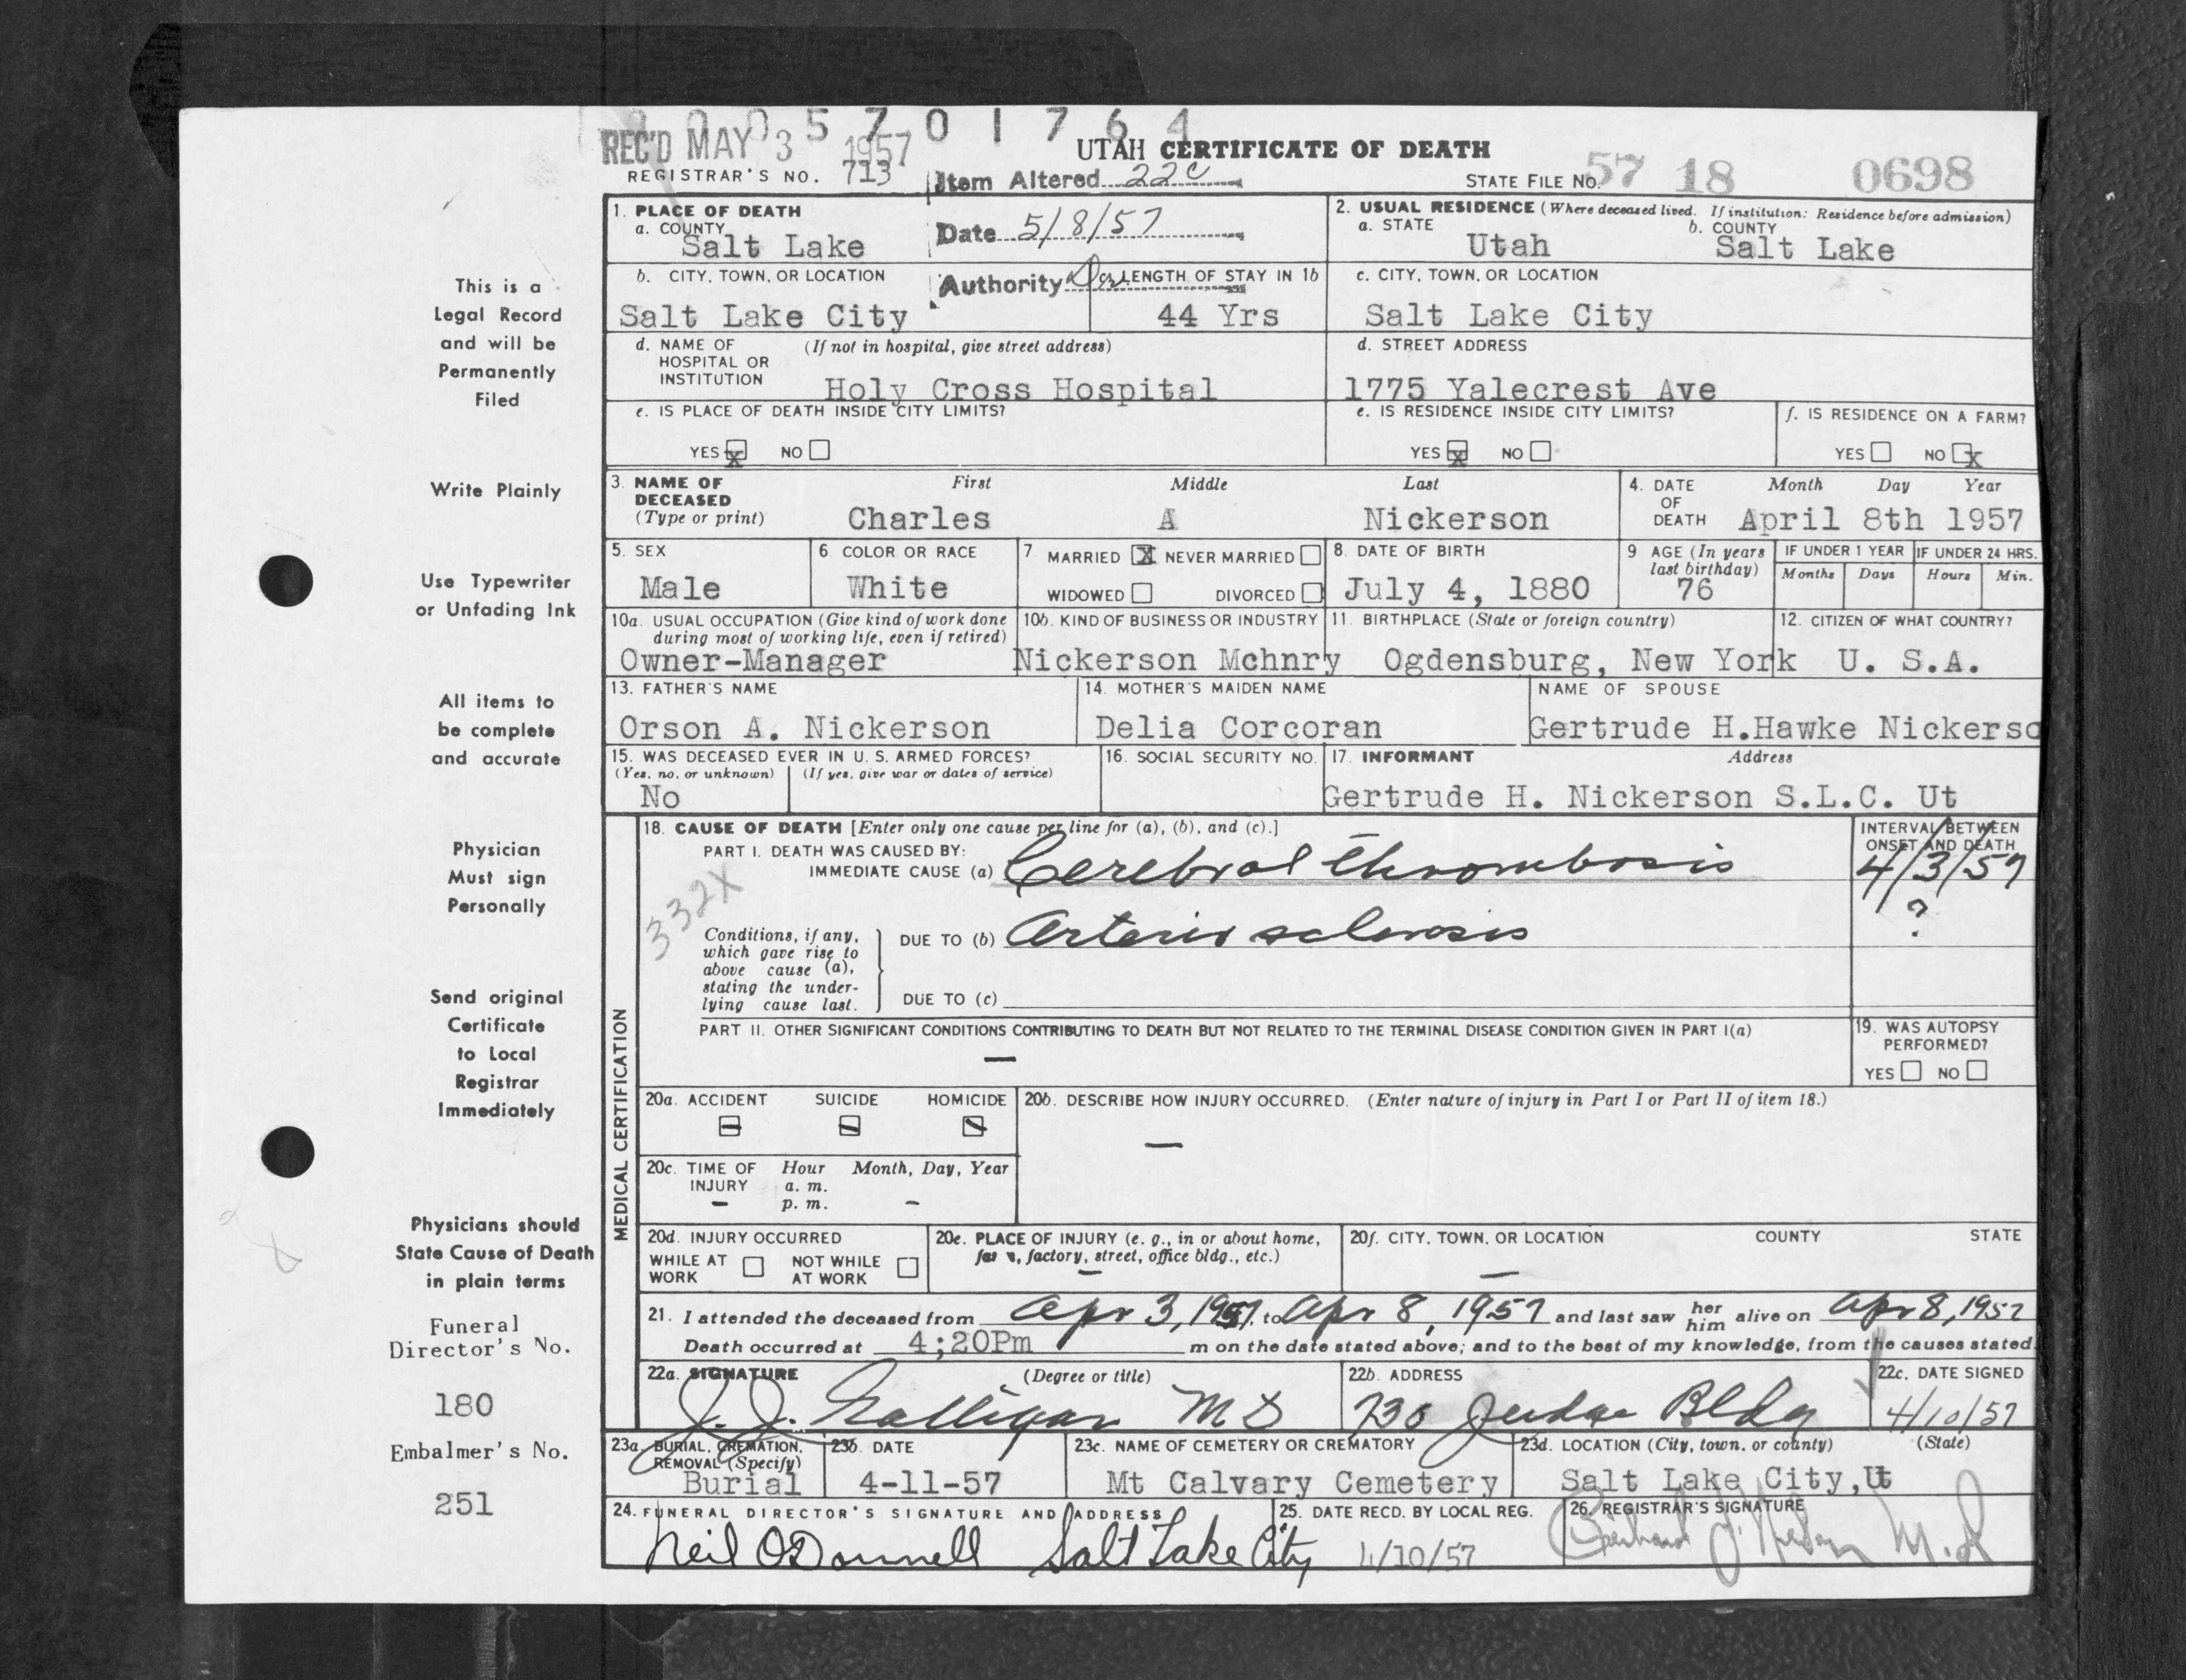 0 0 5 7 0 1 7 6 4
REC'D MAY 3 1957
UTAH CERTIFICATE OF DEATH
REGISTRAR'S NO. 713
Item Altered 22c
STATE FILE NO. 57 18 0698
1. PLACE OF DEATH
a. COUNTY
Salt Lake
Date 5/8/57
2. USUAL RESIDENCE (Where deceased lived. If institution: Residence before admission)
a. STATE
Utah
b. COUNTY
Salt Lake
b. CITY, TOWN, OR LOCATION
Salt Lake City
Authority Dr
LENGTH OF STAY IN 1b
44 Yrs
c. CITY, TOWN, OR LOCATION
Salt Lake City
d. NAME OF HOSPITAL OR INSTITUTION
(If not in hospital, give street address)
Holy Cross Hospital
d. STREET ADDRESS
1775 Yalecrest Ave
e. IS PLACE OF DEATH INSIDE CITY LIMITS?
YES X NO
e. IS RESIDENCE INSIDE CITY LIMITS?
YES X NO
f. IS RESIDENCE ON A FARM?
YES NO X
3. NAME OF DECEASED
(Type or print)
First Middle Last
Charles A Nickerson
4. DATE OF DEATH
Month Day Year
April 8th 1957
5. SEX
Male
6. COLOR OR RACE
White
7. MARRIED X NEVER MARRIED
WIDOWED DIVORCED
8. DATE OF BIRTH
July 4, 1880
9 AGE (In years last birthday)
76
IF UNDER 1 YEAR
Months Days
IF UNDER 24 HRS.
Hours Min.
10a. USUAL OCCUPATION (Give kind of work done during most of working life, even if retired)
Owner-Manager
10b. KIND OF BUSINESS OR INDUSTRY
Nickerson Mchnry
11. BIRTHPLACE (State or foreign country)
Ogdensburg, New York
12. CITIZEN OF WHAT COUNTRY?
U. S.A.
13. FATHER'S NAME
Orson A. Nickerson
14. MOTHER'S MAIDEN NAME
Delia Corcoran
NAME OF SPOUSE
Gertrude H.Hawke Nickerso
15. WAS DECEASED EVER IN U. S. ARMED FORCES?
(Yes, no, or unknown) (If yes, give war or dates of service)
No
16. SOCIAL SECURITY NO.
17. INFORMANT Address
Gertrude H. Nickerson S.L.C. Ut
MEDICAL CERTIFICATION
18. CAUSE OF DEATH [Enter only one cause per line for (a), (b), and (c).]
PART I. DEATH WAS CAUSED BY:
IMMEDIATE CAUSE (a) Cerebral thrombosis
INTERVAL BETWEEN ONSET AND DEATH
4/3/57
332X
Conditions, if any, which gave rise to above cause (a), stating the underlying cause last.
DUE TO (b) Arterio sclerosis
?
DUE TO (c)
PART II. OTHER SIGNIFICANT CONDITIONS CONTRIBUTING TO DEATH BUT NOT RELATED TO THE TERMINAL DISEASE CONDITION GIVEN IN PART I(a)
—
19. WAS AUTOPSY PERFORMED?
YES NO
20a. ACCIDENT SUICIDE HOMICIDE
20b. DESCRIBE HOW INJURY OCCURRED. (Enter nature of injury in Part I or Part II of item 18.)
—
20c. TIME OF INJURY
Hour Month, Day, Year
a. m.
p. m.
20d. INJURY OCCURRED
WHILE AT WORK
NOT WHILE AT WORK
20e. PLACE OF INJURY (e. g., in or about home, farm, factory, street, office bldg., etc.)
20f. CITY, TOWN, OR LOCATION COUNTY STATE
—
21. I attended the deceased from Apr 3, 1957, to Apr 8, 1957 and last saw her him alive on Apr 8, 1957
Death occurred at 4;20Pm m on the date stated above; and to the best of my knowledge, from the causes stated.
22a. SIGNATURE (Degree or title)
J. J. Galligan MD
22b. ADDRESS
730 Judge Bldg
22c. DATE SIGNED
4/10/57
23a. BURIAL, CREMATION, REMOVAL (Specify)
Burial
23b. DATE
4-11-57
23c. NAME OF CEMETERY OR CREMATORY
Mt Calvary Cemetery
23d. LOCATION (City, town, or county) (State)
Salt Lake City, Ut
24. FUNERAL DIRECTOR'S SIGNATURE AND ADDRESS
Neil O'Donnell Salt Lake City
25. DATE RECD. BY LOCAL REG.
4/10/57
26. REGISTRAR'S SIGNATURE
M.D
This is a
Legal Record
and will be
Permanently
Filed
Write Plainly
Use Typewriter
or Unfading Ink
All items to
be complete
and accurate
Physician
Must sign
Personally
Send original
Certificate
to Local
Registrar
Immediately
Physicians should
State Cause of Death
in plain terms
Funeral
Director's No.
180
Embalmer's No.
251